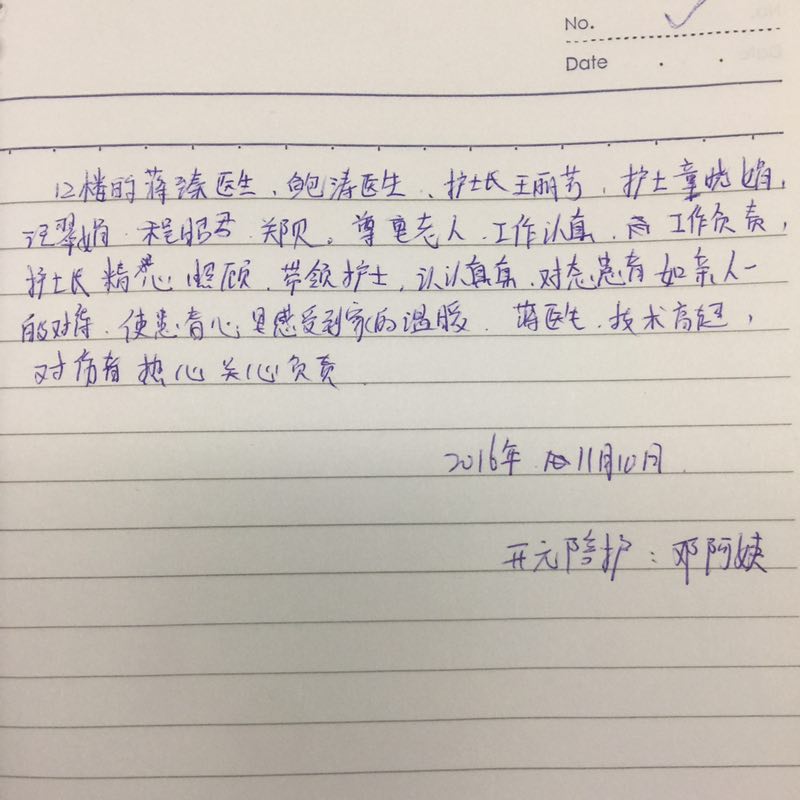 No.
Date
12楼的蒋臻医生、鲍涛医生、护士长王丽芳,护士童晓娟,
汪翠娟.程昭君.郑贝。尊重老人.工作认真.工作负责,
护士长精心照顾.带领护士,认认真真.对态患者如亲人一
的对待.使患者心里感受到家的温暖.蒋医生.技术高超,
对伤者热心关心负责
2016年11月10日.
开元陪护:邓阿姨